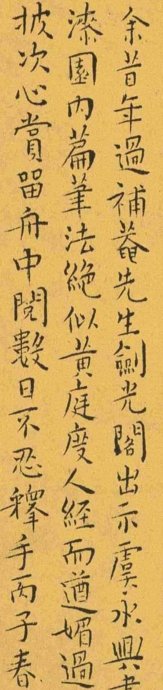 余昔年過補菴先生劍光閣出示虞永興書
漆園內篇筆法絕似黃庭度人經而遒媚過
披次心賞留舟中閱數日不忍釋手丙子春